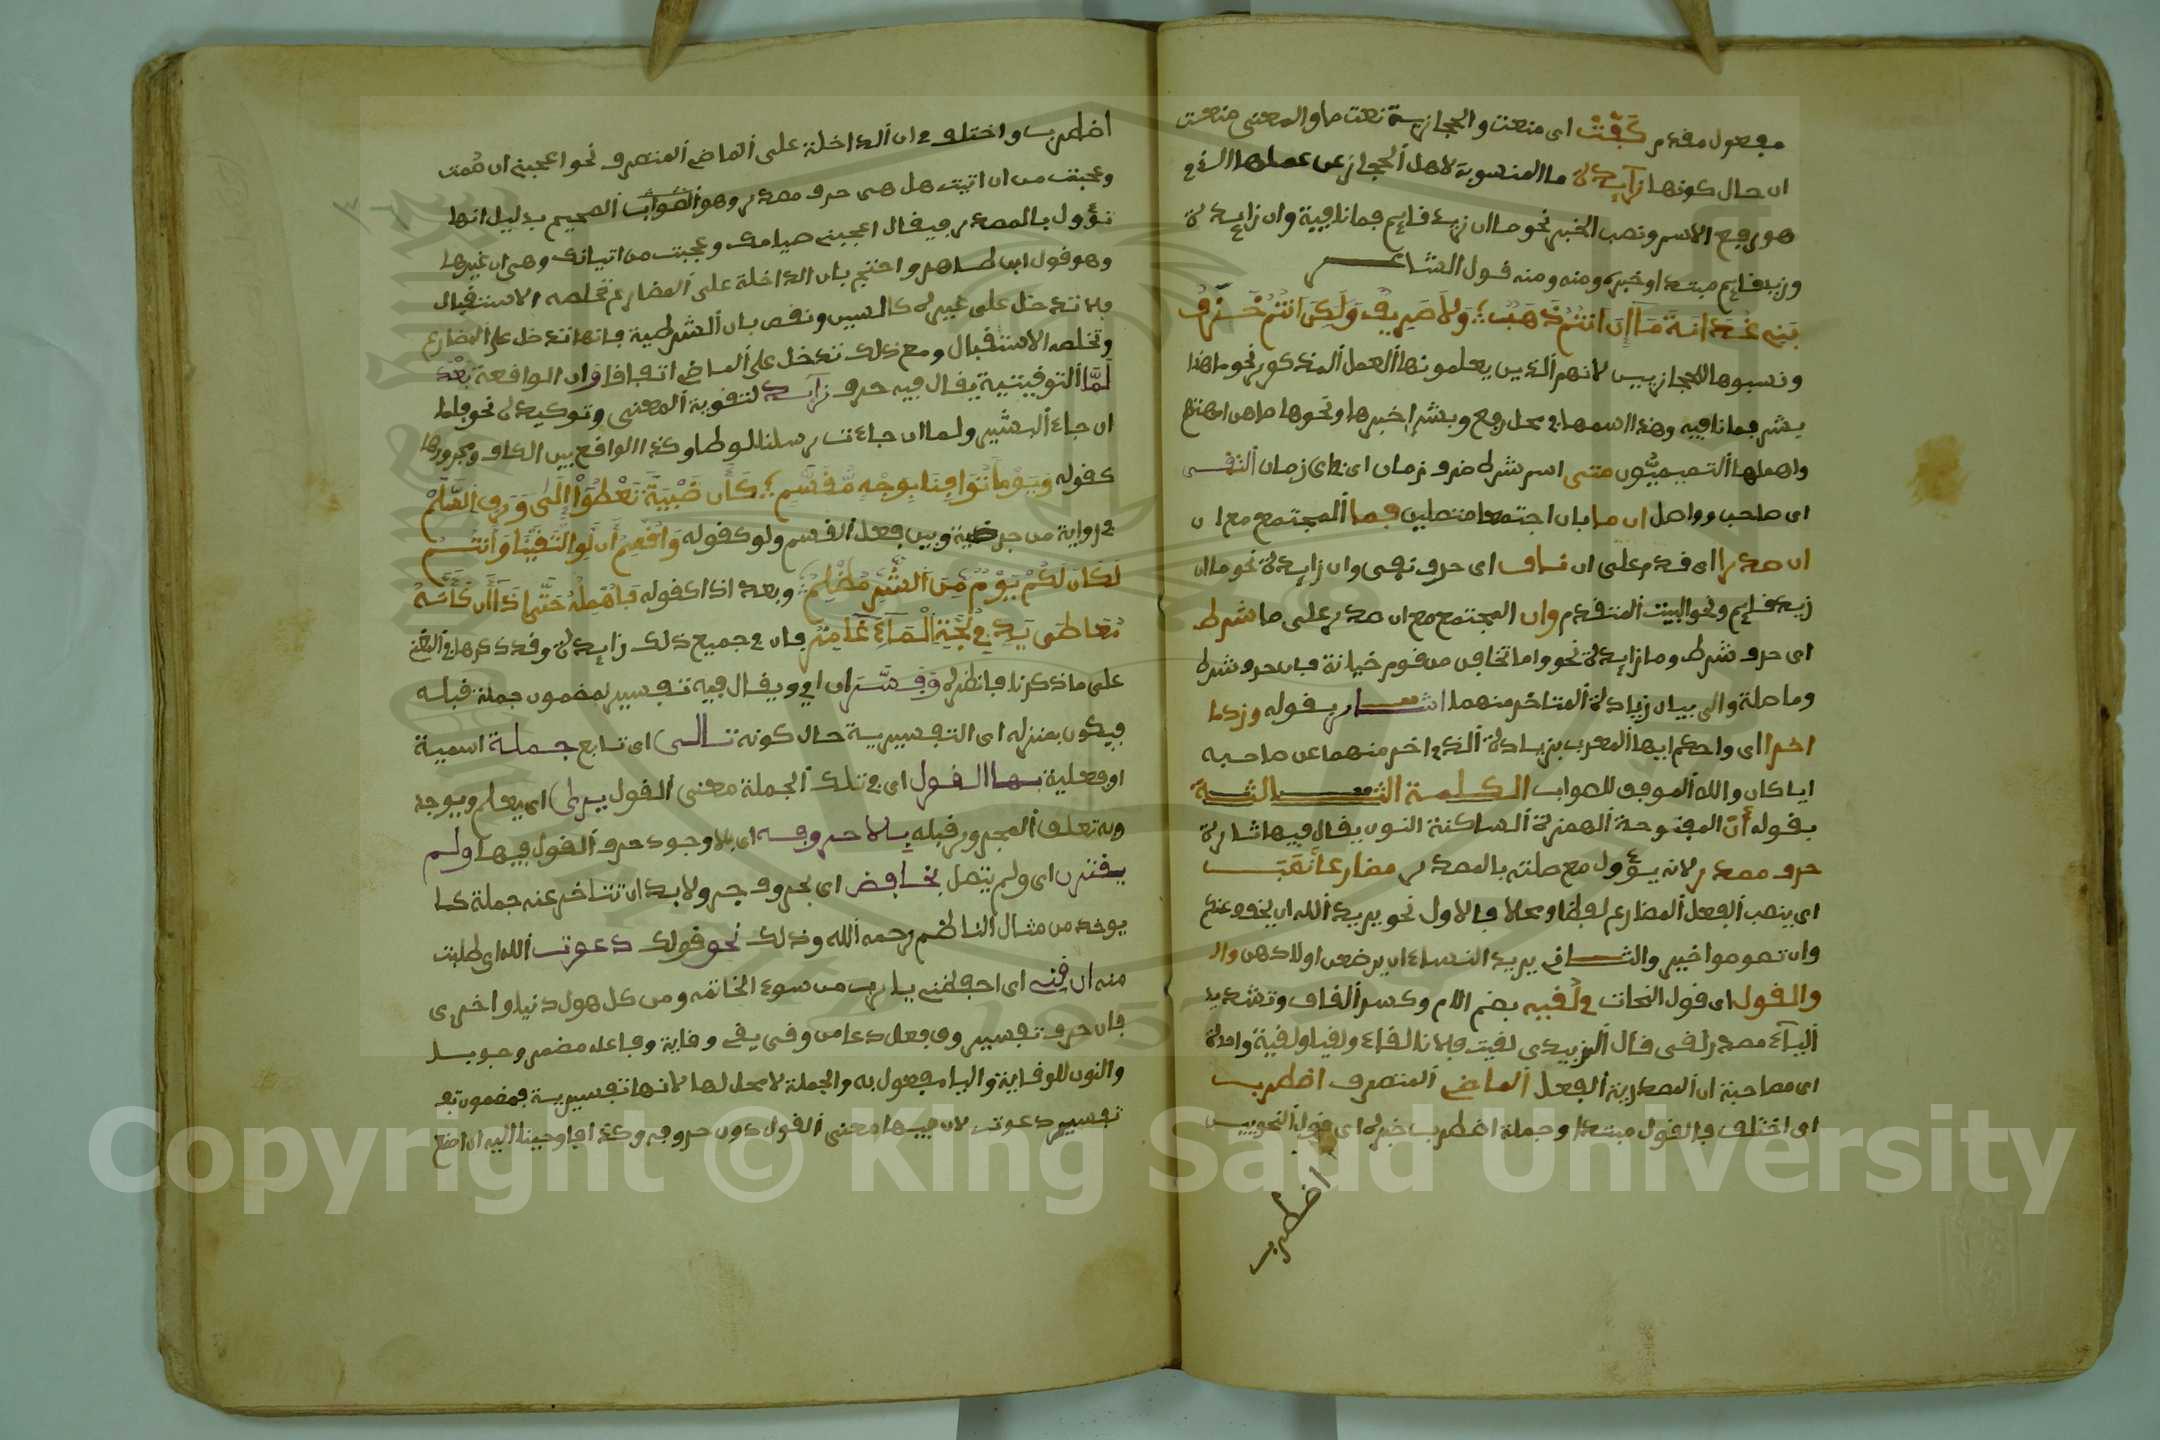 مفعول مقدم كَفَّتْ اى منعت والحجازية نعت ما والمعنى منعت
ان حال كونها زآيدة ما المنسوبة لاهل ألحجاز عن عملها الذى
هو رفع الاسم ونصب الخبر نحو ما ان زيد قايم فما نافية وان زايدة
وزيد قايم مبتدا وخبره ومنه قول الشاعر
بَنِي غُدَانَةَ مَآ إِن انتُمُ ذَهَبٌ ؛ وَلاَ صَرِيفٌ وَلَكِن انْتُمُ خَزَفُ
ونسبوها للحجازيين لانهم ألذين يعملونها ألعمل ألمذكور نحو ما هذا
بشر فما نافيه وهذا اسمها فى محل رفع وبشرا خبرها ونحوها ما هن امهتهم
واهملها ألتميميُّون متى اسم شرط ظرف زمان اى فى اى زمان ألنفى
اى صاحب وواصل ان ما بان اجتمعا متصلين فما ألمجتمع مع ان
ان صدرا اى قدم على ان ناف اى حرف نفى وان زايدة نحو ما ان
زيد قايم ونحو البيت ألمتقدم وان المجتمع مع ان صدر على ما شرط
اى حرف شرط وما زايدة نحو واما تخافن من قوم خيانة فان حرف شرط
وما صلة والى بيان زيادة ألمتاخر منهما اشار بقوله وزد ما
اخرا اى واحكم ايها ألمعرب بزيادة ألذى اخر منهما عن صاحبه
ايا كان والله ألموفق للصواب الكلمة الثالثة
بقوله أَنْ المفتوحة ألهمزة ألساكنة النون يقال فيها تارة
حرف مصدر لانه يؤول مع صلته بالمصدر مضارعا نصَبَ
اى ينصب ألفعل ألمضارع لفظا ومحلا فالاول نحو يريد ألله ان يخفف عنكم
وان تصوموا خير والثانى يريد النساء ان يرضعن اولادهن وال
والقول اى قول النحات فى لُقيه بضم اللام وكسر ألقاف وتشديد
ألياء مصدر لقى قال ألزبيدى لقيت فلانا لقاء ولقيا ولقية واحدة
اى مصاحبة ان ألمصدرية ألفعل ألماضى ألمتصرف اضطرب
اى اختلف فالقول مبتدا وجملة اضطرب خبره اى قول ألنحويين
اضطرب
اضطرب واختلف فى ان ألداخلة على ألماضى ألمتصرف نحو اعجبنى ان قُمت
وعجبت من ان اتيت هل هى حرف مصدر وهو ألصواب الصحيح بدليل انها
تؤول بالمصدر فيقال اعجبنى صيامك وعجبت من اتيانك وهى ان غيرها
وهو قول ابن طاهر واحتج بان الداخلة على ألمضارع تخلصه الاستقبال
فلا تدخل على غيره كالسين ونقض بان ألشرطية فانها تدخل على المضارع
وتخلصه الاستقبال ومع ذلك تدخل على ألماضى اتفاقا وان الواقعة بَعْدَ
لَمَّا ألتوقيتية يقال فيه حرف زآيد لتقوية ألمعنى وتوكيده نحو فلما
ان جاء ألبشير ولما ان جاءت رسلنا لوطا وكذا الواقع بين الكاف ومجرورها
كقوله وَيَوْماً تُوَافِينَا بِوَجْهٍ مُّقَسَّمٍ ؛ كَأَن ظَبْيَةٍ تَعْطُوا إِلَى وَرِقِ السَّلَمْ
فى رواية من جر ظبية وبين فعل القسم ولو كقوله وَأُقْسِمُ أَن لَّوِ الْتَقَيْنَا وَأَنْتُمُ
لَكَانَ لَكُمْ يَوْمٌ مِّنَ الشَّرِّ مُظْلِمُ ؛ وبعد اذا كقوله فَأُمْهِلُهُ حَتَّى إِذَا أَن كَأَنَّهُ
مُعَاطِى يَدٍ فِى لُجَّةِ الْمَآءِ غَامِرُ فان فى جميع ذلك زايدة وقد ذكرها فى المغنى
على ما ذكرنا فانظره وَفَسَّرَ ان اى ويقال فيه تفسير لمضمون جملة قبله
فيكون بمنزلة اى التفسيرية حال كونه تالى اى تابع جملة اسمية
او فعلية بها القول اى فى تلك ألجملة معنى ألقول يرى اى يعلم ويوجد
وبه تعلق ألمجرور قبله بلا حروفه اى بلا وجود حرف ألقول فيها ولم
يقترن اى ولم يتصل بخافض اى بحرف جر ولا بد ان تتاخر عنه جملة كما
يوخذ من مثال الناظم رحمه الله وذلك نحو قولك دعوت ألله اى طلبت
منه ان قِنى اى احفظنى يا رب من سوء الخاتمه ومن كل هول دنيا واخرى
فان حرف تفسير وق فعل دعا من وقى يقى وقاية وفاعله مضمر وجوبا
والنون للوقاية واليا مفعول به والجملة لا محل لها لانها تفسيرية فمضمون تف
تفسير دعوت لان فيها معنى ألقول دون حروفه وكذا فاوحينا اليه ان اصنع
Copyright © King Saud University